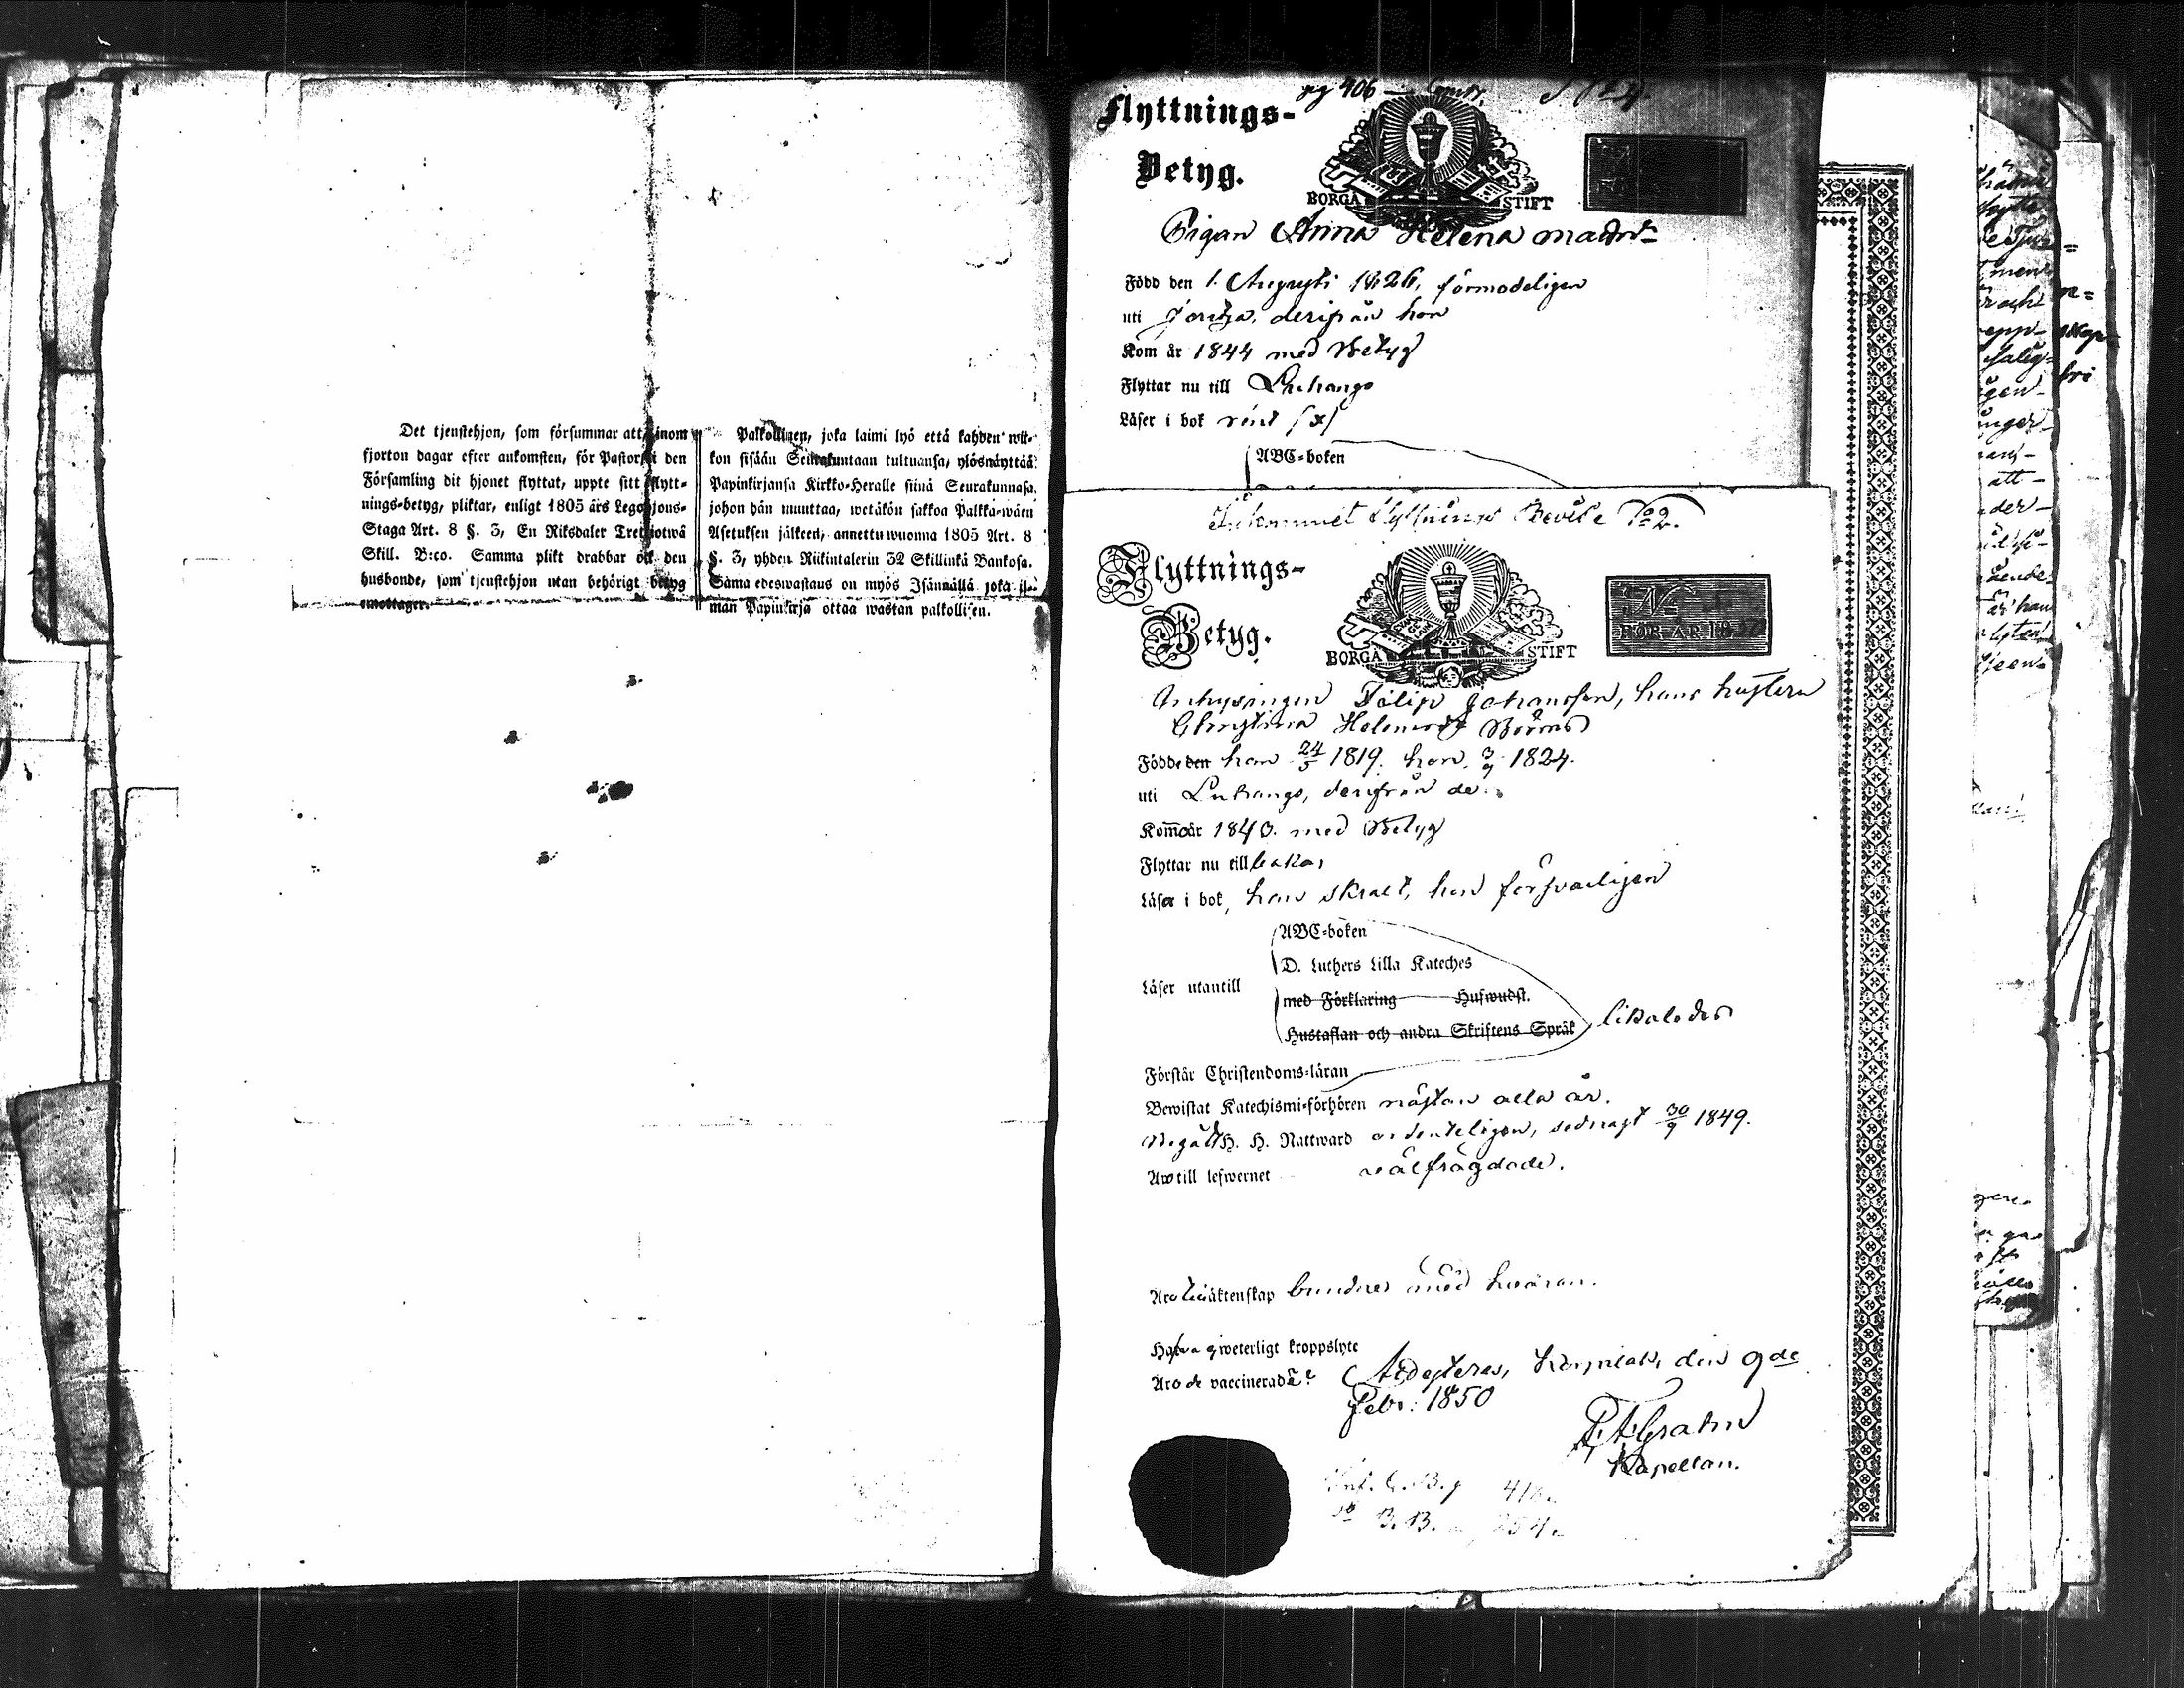 Det tjenstehjon, som försummar att inom
fjorton dagar efter ankomsten, för Pastor i den
Församling dit hjonet flyttat, uppte sitt flytt-
nings-betyg, pliktar, enligt 1805 års Legohjons-
Staga Art. 8 §. 3, En Riksdaler Trettiotwå
Skill. B:co. Samma plikt drabbar ock den
husbonde, som tjenstehjon utan behörigt betyg
emottager.
Palkollinen, joka laimi lyö että kahden wii-
kon sisään Seurakuntaan tultuansa, ylösnäyttää
Papinkirjansa Kirkko-Heralle siinä Seurakunnasa,
johon hän muuttaa, wetäkön sakkoa Palkka-wäen
Asetuksen jälkeen, annettu wuonna 1805 Art. 8
§. 3, yhden Riikintalerin 32 Skillinkä Bankosa.
Sama edeswastaus on myös Isännällä joka il-
man Papinkirja ottaa wastan palkollisen.
pg 406
Flyttnings-
Betyg.
BORGÅ STIFT
Pigan Anna Helena
Född den 1. Augusti 1826, förmodeligen
uti Joutza, derifrån hon
Kom år 1844 med Betyg
Flyttar nu till Luhango
Läser i bok rent (x)
ABC-boken
Inkommet Flyttnings Bevis No 2.
Flyttnings-
Betyg.
BORGÅ STIFT
FÖR ÅR 18
Inhysingen Filip Johansson, hans hustru
Christina Helena
Född den han 24/5 1819. hon 3/9 1824.
uti Luhango, derifrån de
Kommo år 1843. med Betyg
Flyttar nu till
Läsa i bok, han skralt, hon försvarligen
ABC-boken
D. Luthers Lilla Kateches
Läser utantill
med Förklaring Hufwudst.
Hustaflan och andra Skriftens Språk likaledes
Förstår Christendoms-läran
Bewistat Katechismi-förhören nästan alla år.
Begått H. H. Nattward ordenteligen, sednast 30/9 1849.
Äro till lefwernet välfrägdade.
Äro till äktenskap bundne med hvaran.
Hafwa ej weterligt kroppslyte
Äro de vaccinerade? den 9de
Febr. 1850
Kapellan.